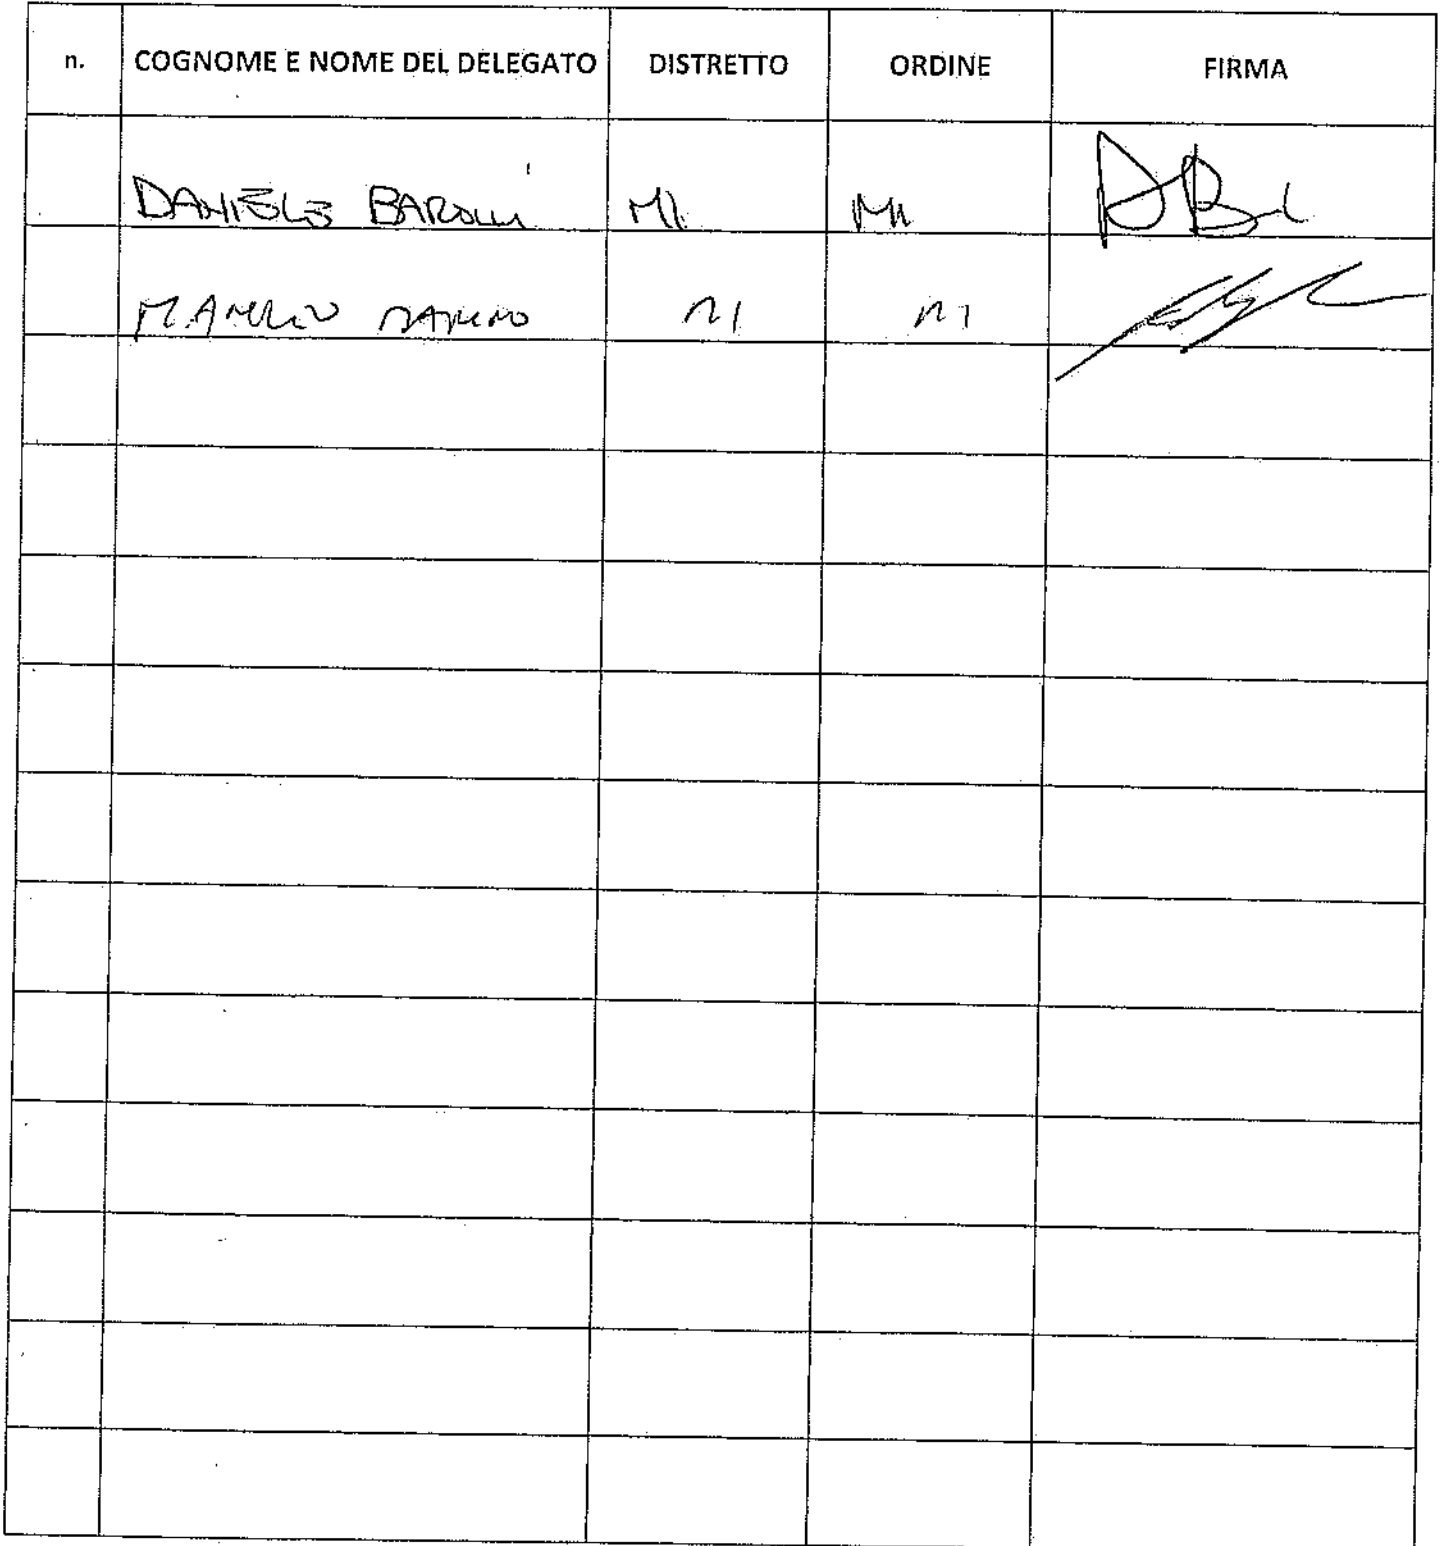 n. COGNOME E NOME DEL DELEGATO DISTRETTO ORDINE FIRMA
DANIELE BAROLLI MI MI
MANLIO MI MI